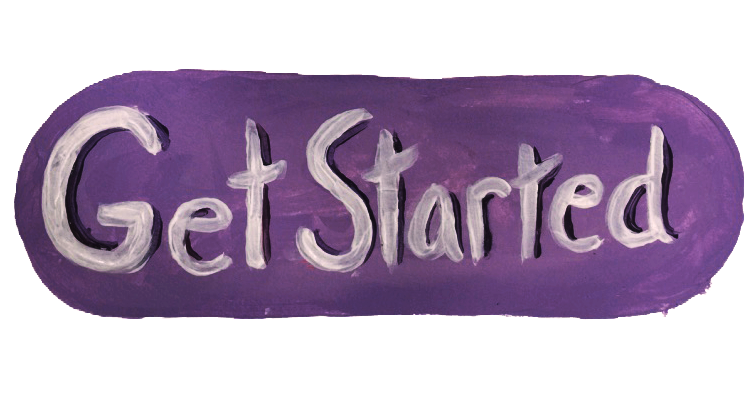 Get Started